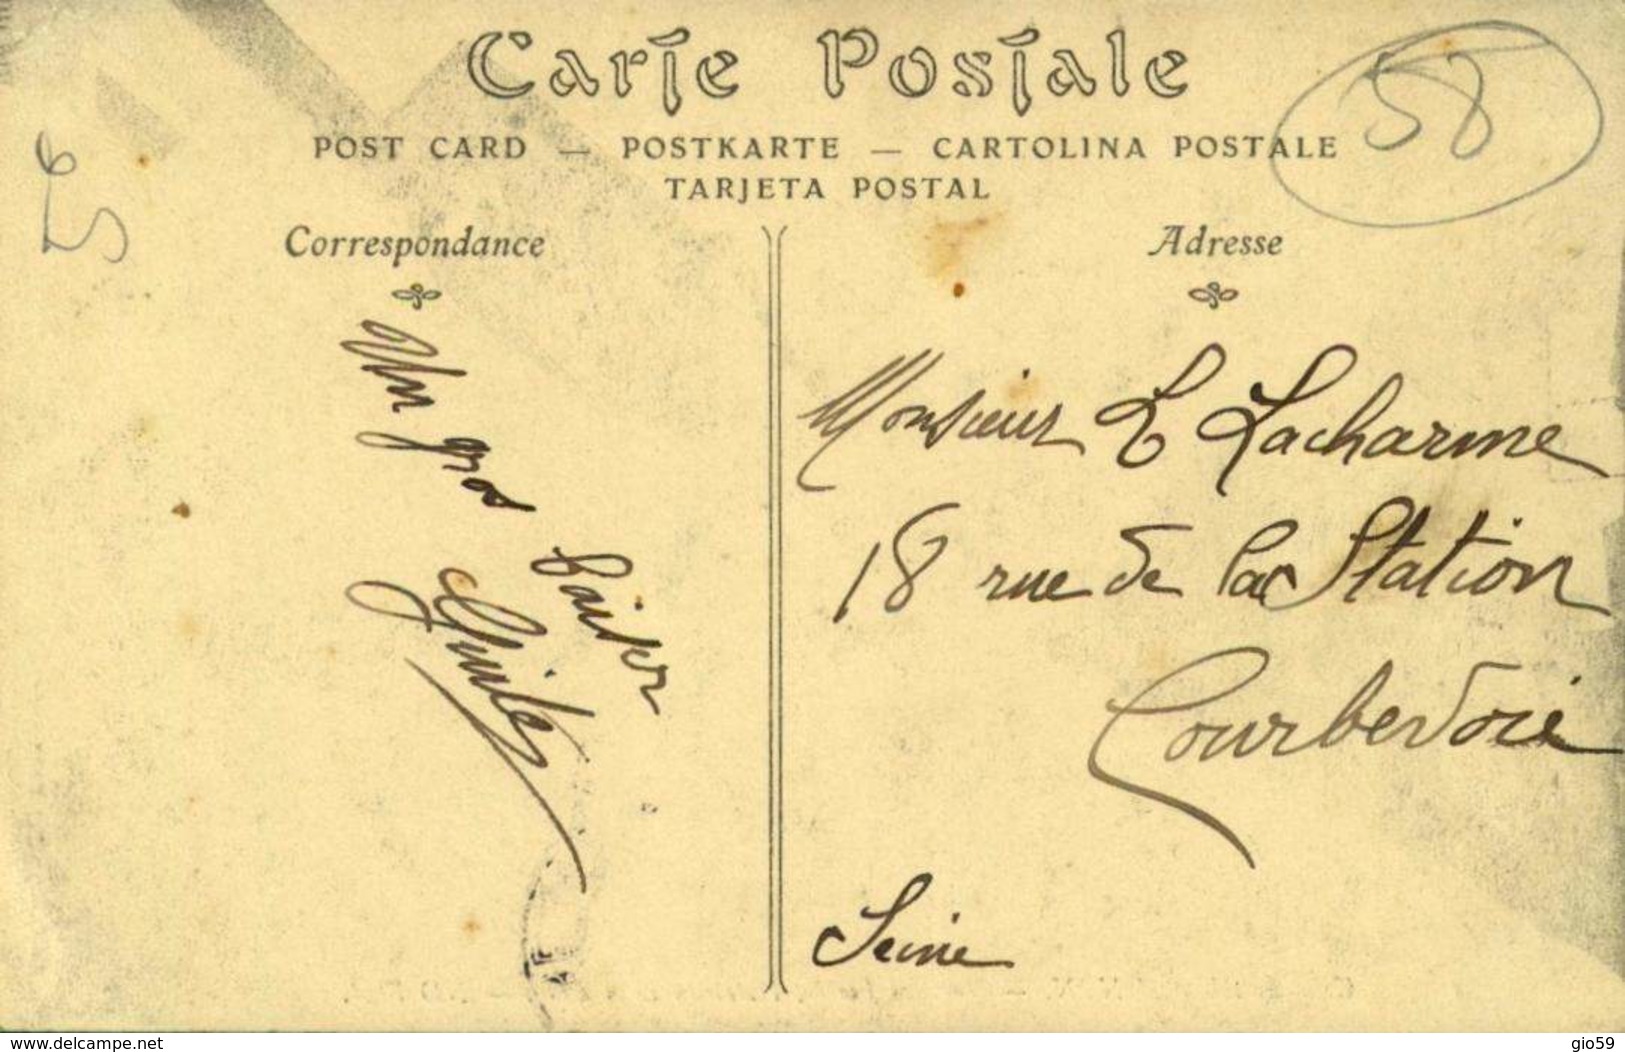 Carte Postale
58
56
POST CARD — POSTKARTE — CARTOLINA POSTALE
TARJETA POSTAL
Correspondance
Adresse
Un gros
baiser
Monsieur E Lacharme
18 rue de la Station
Courbevoie
Seine
www.delcampe.net
gio59